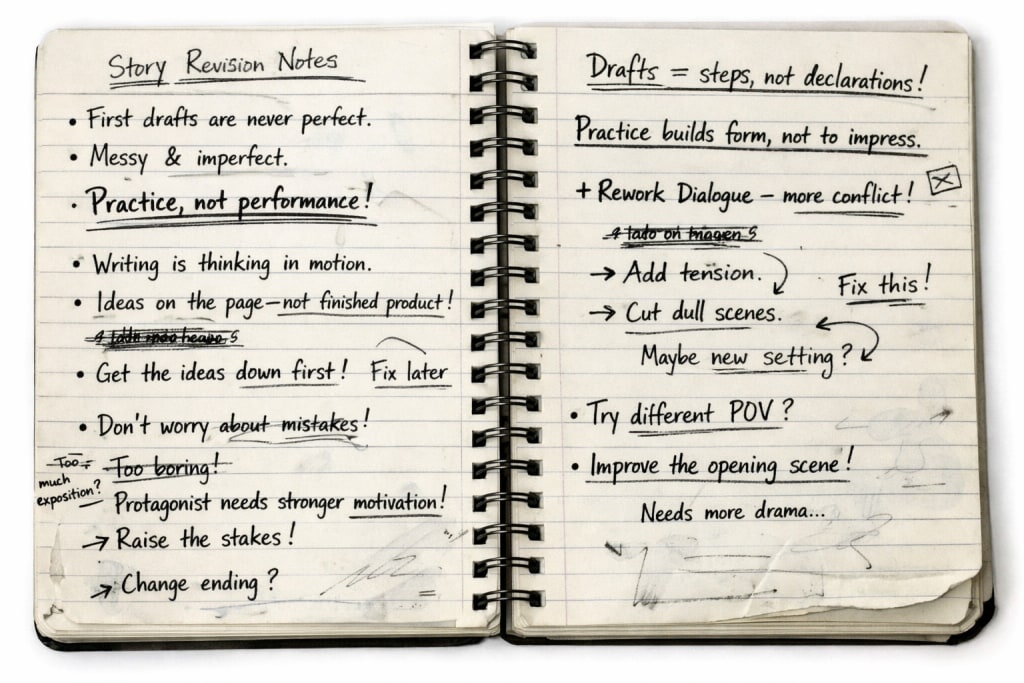 Story Revision Notes
• First drafts are never perfect.
• Messy & imperfect.
• Practice, not performance!
• Writing is thinking in motion.
• Ideas on the page—not finished product!
• Get the ideas down first! Fix later
• Don't worry about mistakes!
Too
much
exposition?
Too boring!
— Protagonist needs stronger motivation!
→ Raise the stakes!
→ Change ending?
Drafts = steps, not declarations!
Practice builds form, not to impress.
+ Rework Dialogue – more conflict!
→ Add tension.
Fix this!
→ Cut dull scenes.
Maybe new setting?
• Try different POV?
• Improve the opening scene!
Needs more drama...